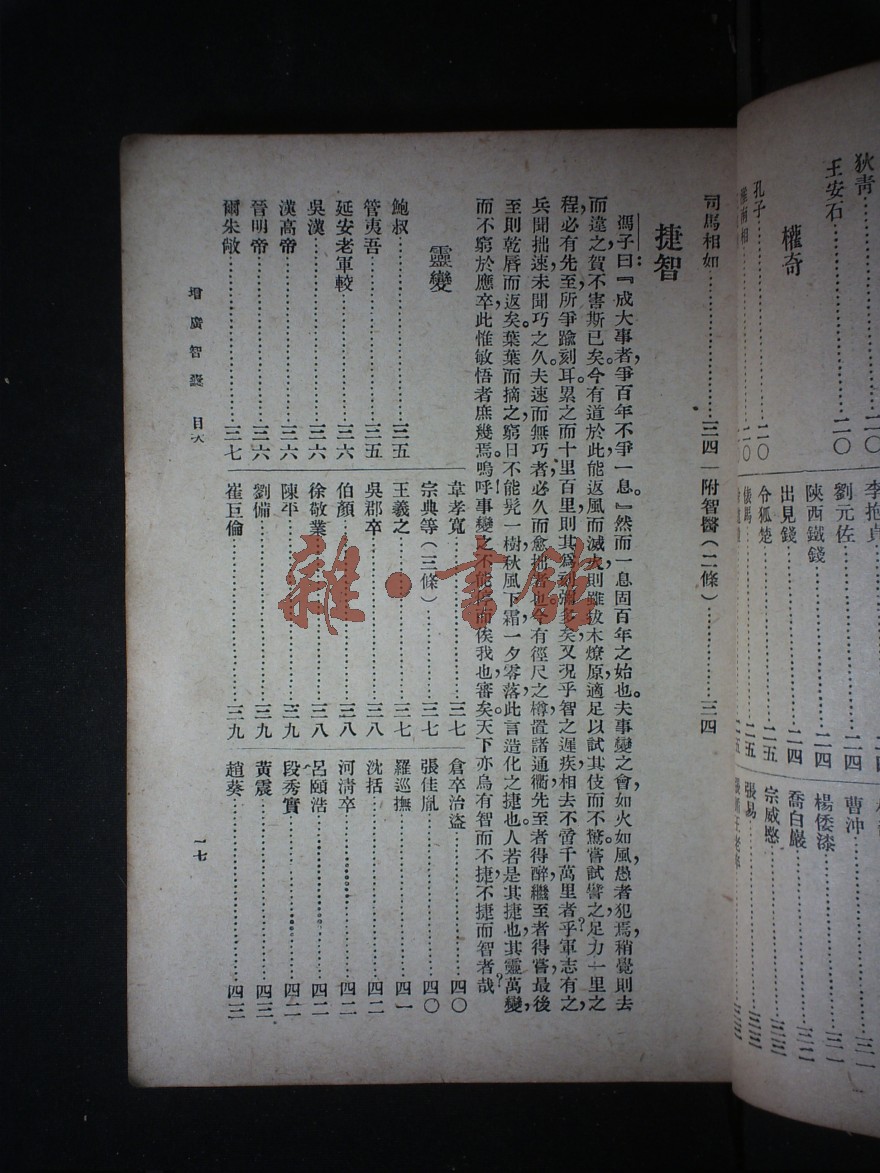 狄青……二〇
王安石……二〇
權奇
孔子……二〇
劉元佐……二四
陝西鐵錢……二四
出見錢……二四
令狐楚……二五
俵馬……二五
曹沖……三一
楊倭漆……三一
喬白巖……三二
宗威愍……三三
張易……三三
司馬相如……三四
附智醫(二條)……三四
捷智
馮子曰:『成大事者,爭百年,不爭一息。』然而一息固百年之始也。夫事變之會,如火如風,愚者犯焉,稍覺則去
而違之,賀不害斯已矣。今有道於此,能返風而滅火,則雖拔木燎原,適足以試其伎而不驚。嘗試譬之足力,一里之
程,必有先至,所爭踰刻耳。累之而十里百里,則其爲刻彌多矣,又況乎智之遲疾,相去不啻千萬里者乎?軍志有之,
兵聞拙速,未聞巧之久。夫速而無巧者,必久而愈拙者也。今有徑尺之樽,置諸通衢,先至者得醉,繼至者得嘗,最後
至則乾唇而返矣。葉葉而摘之,窮日不能髡一樹,秋風下霜,一夕零落,此言造化之捷也。人若是其捷也,其靈萬變,
而不窮於應卒,此惟敏悟者庶幾焉。嗚呼!事變之不能停而俟我也審矣。天下亦烏有智而不捷,不捷而智者哉?
靈變
鮑叔……三五
管夷吾……三五
延安老軍較……三六
吳漢……三六
漢高帝……三六
晉明帝……三六
爾朱敞……三七
韋孝寬……三七
宗典等(三條)……三七
王羲之……三七
吳郡卒……三八
伯顏……三八
徐敬業……三八
陳平……三九
劉備……三九
崔巨倫……三九
倉卒治盜……四〇
張佳胤……四〇
羅巡撫……四一
沈括……四二
河清卒……四二
呂頤浩……四二
段秀實……四二
黃震……四三
趙葵……四三
增廣智囊 目次
一七
雜·書館